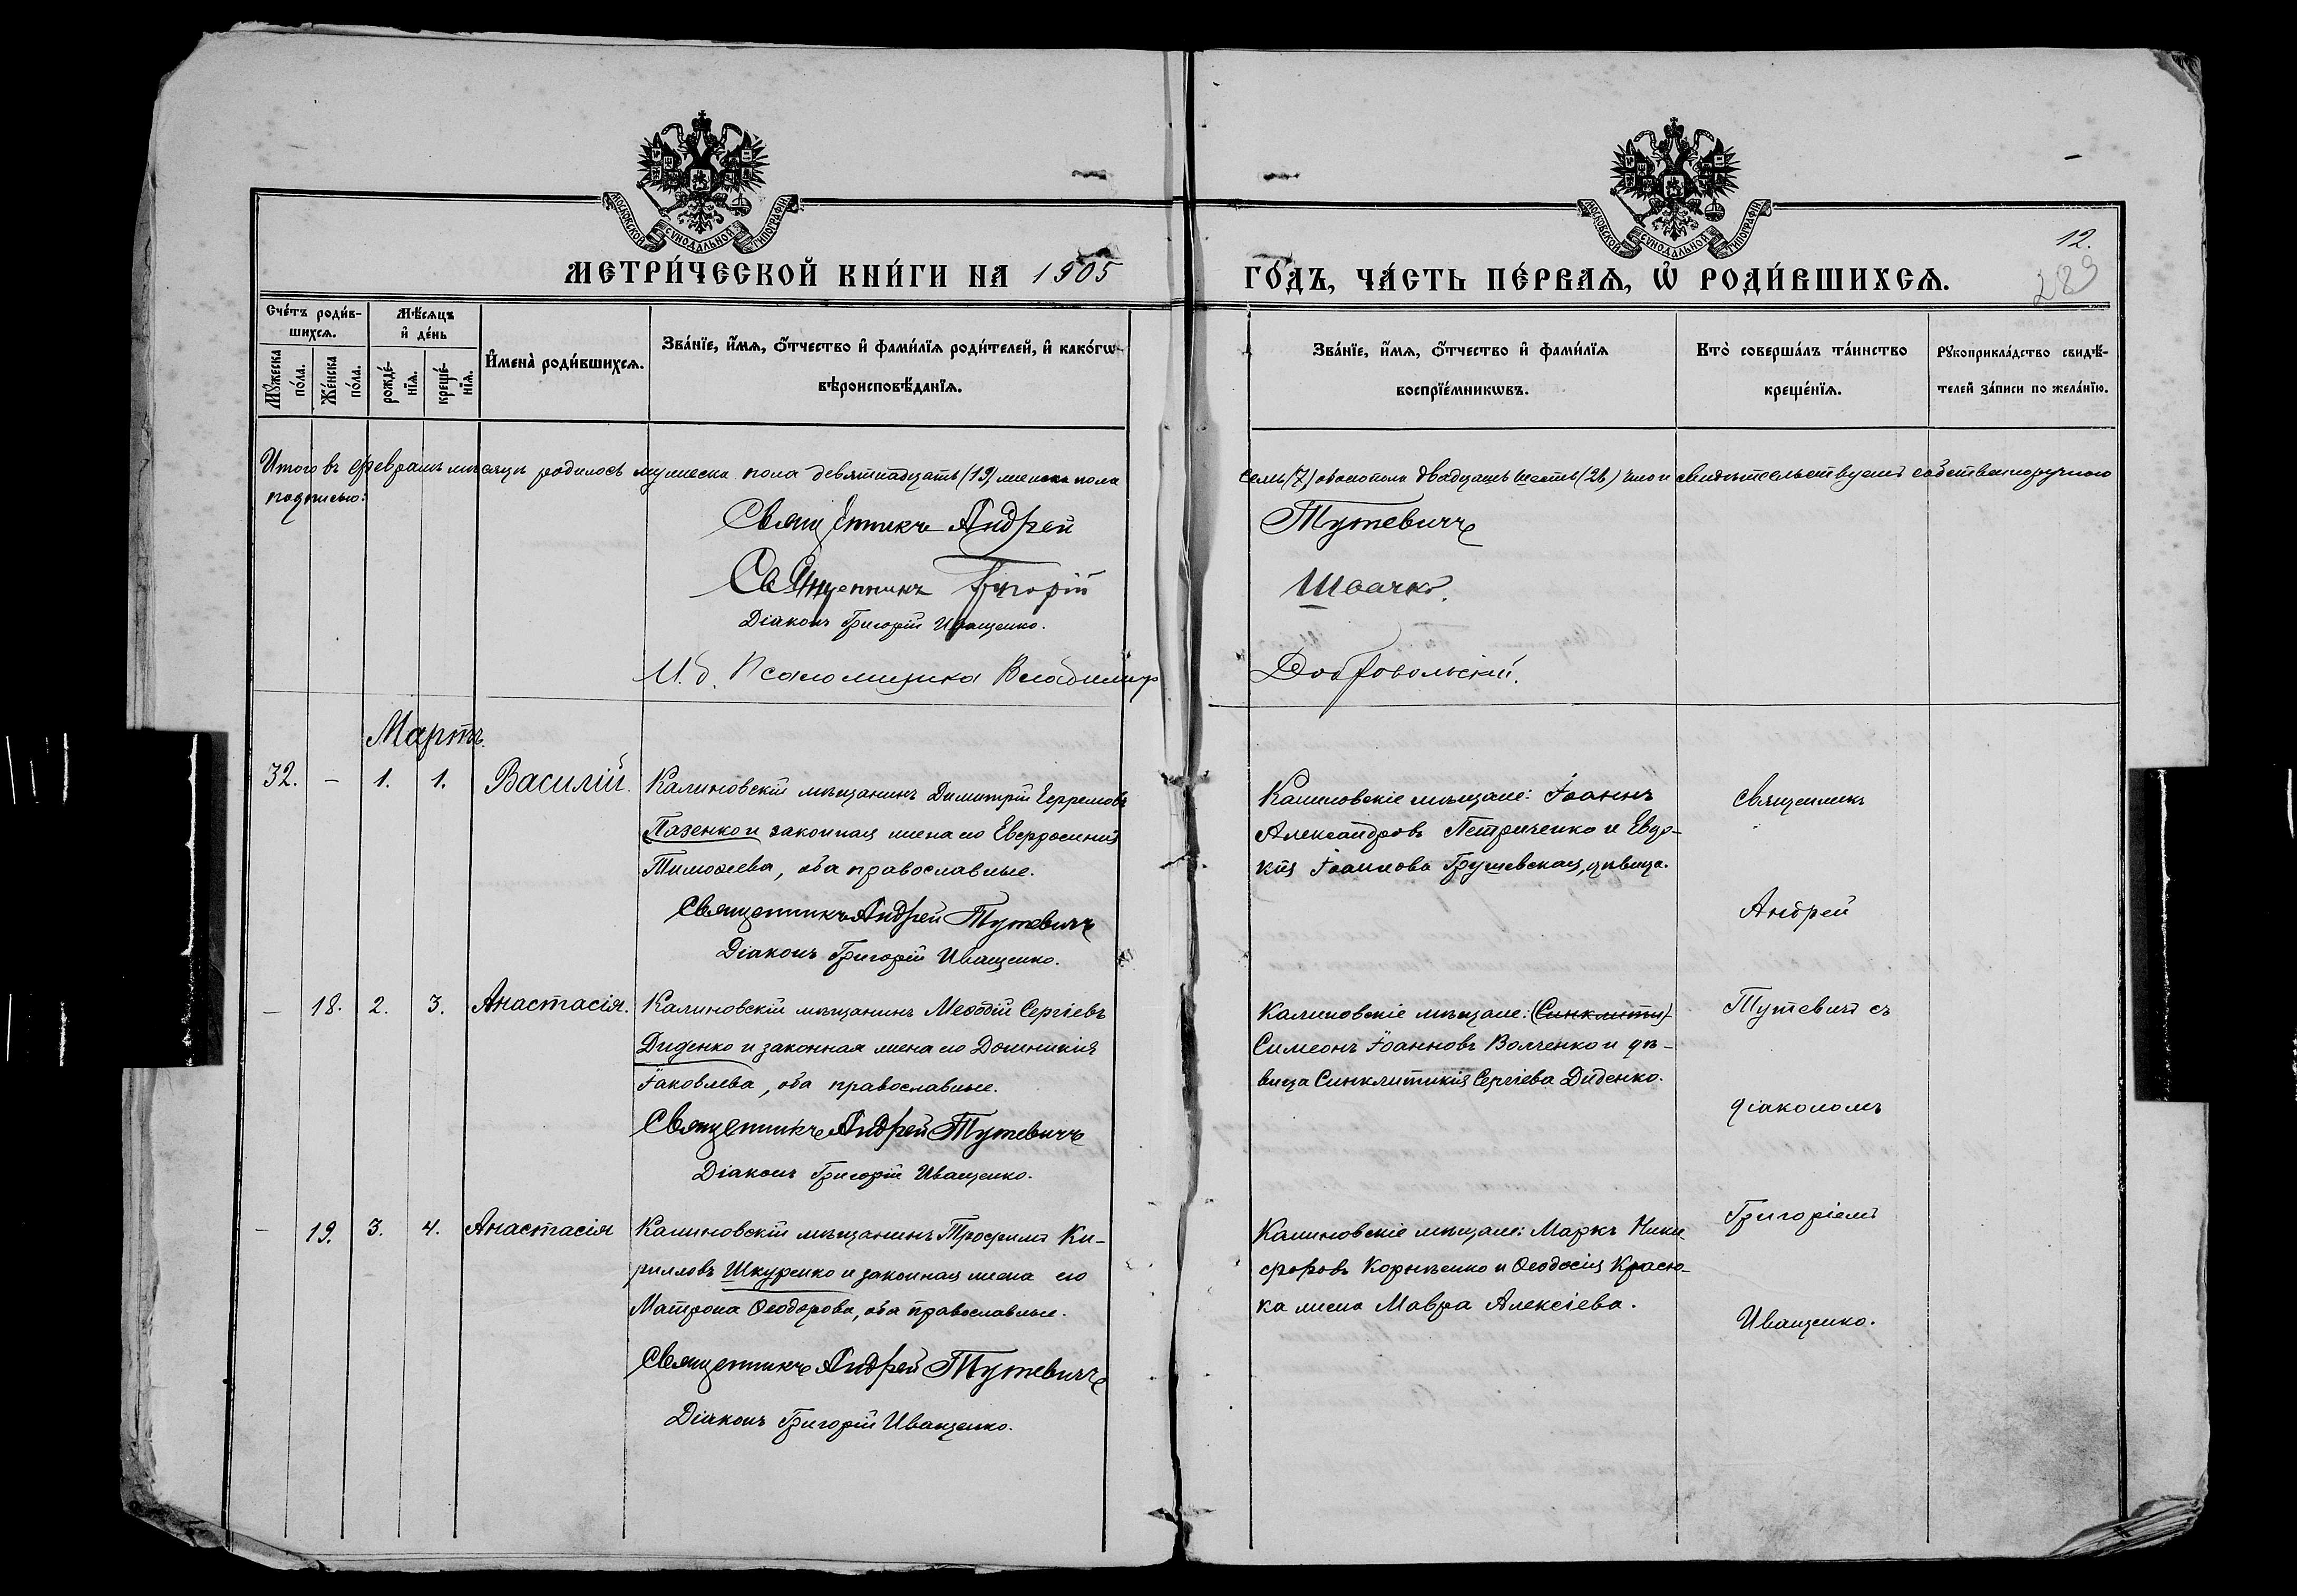 МОСКОВСКОЙ СѴНОДАЛЬНОЙ ТИПОГРАФІИ
МОСКОВСКОЙ СѴНОДАЛЬНОЙ ТИПОГРАФІИ
МЕТРИ́ЧЕСКОЙ КНИ́ГИ НА 1905 ГО́ДЪ, ЧА́СТЬ ПЕ́РВАѦ, Ѡ҆ РОДИ́ВШИХСѦ.
12.
289
Сче́тъ роди́в-
шихсѧ.
Мꙋ́жеска
по́ла.
Же́нска
по́ла.
Мѣ́сѧцъ
и҆ де́нь
рожде́-
нїѧ.
креще́-
нїѧ.
И҆мена̀ роди́вшихсѧ.
Зва́нїе, и҆́мѧ, ѻ҆́тчество и҆ фами́лїѧ роди́телей, и҆ како́гѡ
вѣроисповѣ́данїѧ.
Зва́нїе, и҆́мѧ, ѻ҆́тчество и҆ фами́лїѧ
воспрїе́мникѡвъ.
Кто̀ соверша́лъ та́инство
креще́нїѧ.
Рꙋкоприкла́дство свидѣ́-
телей за́писи по жела́нїю.
Итого въ февралѣ мѣсяцѣ родилось мужеска пола девятнадцать (19) женска пола семь (7) обоего пола двадцать шесть (26) что и свидѣтельствуемъ собственноручною
подписью:
Священникъ Андрей Тутевичъ
Священникъ Григорій Швачко.
Діаконъ Григорій Иващенко.
И. д. Псаломщика Владимир Добровольскій.
Мартъ.
32. — 1. 1. Василій. Калиновскій мѣщанинъ Димитрій Ефремовъ
Пазенко и законная жена его Евфросинія
Тимоѳеева, оба православные.
Священникъ Андрей Тутевичъ
Діаконъ Григорій Иващенко.
Калиновскіе мѣщане: Іоаннъ
Александровъ Петриченко и Евдо-
кія Іоаннова Грушевская, дѣвица.
— 18. 2. 3. Анастасія. Калиновскій мѣщанинъ Меѳодій Сергіевъ
Диденко и законная жена его Домникія
Іаковлева, оба православные.
Священникъ Андрей Тутевичъ
Діаконъ Григорій Иващенко.
Калиновскіе мѣщане: (Синклити)
Симеонъ Іоанновъ Волченко и дѣ-
вица Синклитикія Сергіева Диденко.
— 19. 3. 4. Анастасія Калиновскій мѣщанинъ Трофимъ Ки-
рилловъ Шкуренко и законная жена его
Матрона Ѳеодорова, оба православные.
Священникъ Андрей Тутевичъ
Діаконъ Григорій Иващенко.
Калиновскіе мѣщане: Маркъ Ники
форовъ Корнѣенко и Ѳеодосія Красю-
ка жена Мавра Алексіева.
Священникъ
Андрей
Тутевичъ съ
діакономъ
Григоріемъ
Иващенко.